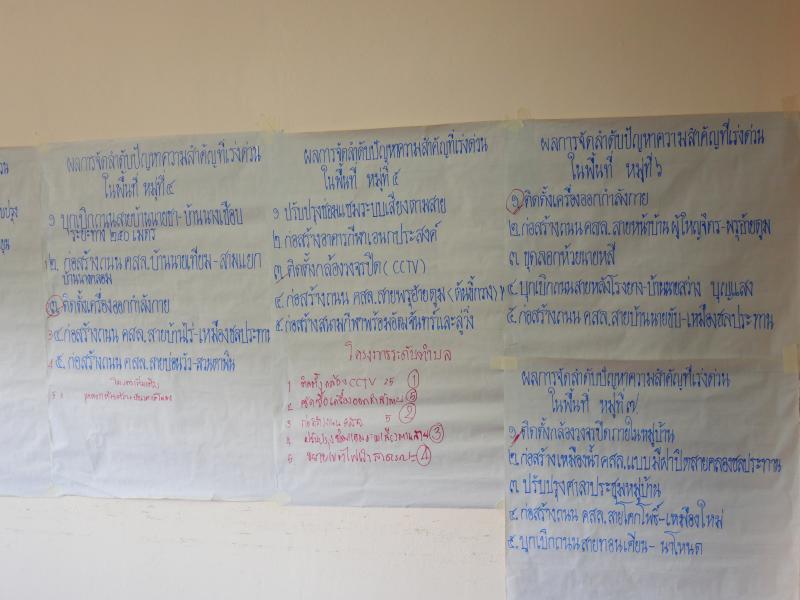 ผลการจัดลำดับปัญหาความสำคัญที่เร่งด่วน
ในพื้นที่ หมู่ที่ ๔
๑ บุกเบิกถนนสายบ้านนายชา-บ้านนางเชือบ
ระยะทาง ๒๕๐ เมตร
๒. ก่อสร้างถนน คสล. บ้านนายเทียม-สามแยก
บ้านนาคลอม
๓ ติดตั้งเครื่องออกกำลังกาย
๔. ก่อสร้างถนน คสล. สายบ้านไร่-เหมืองชลประทาน
๕. ก่อสร้างถนน คสล. สายบ่อนวัว-สวนตาพิน
ผลการจัดลำดับปัญหาความสำคัญที่เร่งด่วน
ในพื้นที่ หมู่ที่ ๕
๑ ปรับปรุงซ่อมแซมระบบเสียงตามสาย
๒ ก่อสร้างอาคารกีฬาเอนกประสงค์
๓. ติดตั้งกล้องวงจรปิด (CCTV)
๔. ก่อสร้างถนน คสล. สายพรุอ้ายดูม (ต้นขี้กรง)
๕. ก่อสร้างสนามกีฬาพร้อมอัฒจันทร์และลู่วิ่ง
โครงการระดับตำบล
1 ติดตั้งกล้อง CCTV 25 ①
2 จัดซื้อเครื่องออกกำลังกาย ⑤
3 ก่อสร้างถนน คสล. 5 ②
4 ปรับปรุงซ่อมแซมเสียงตามสาย ③
5 ขยายเขตไฟฟ้าสาธารณะ ④
ผลการจัดลำดับปัญหาความสำคัญที่เร่งด่วน
ในพื้นที่ หมู่ที่ ๖
๑. ติดตั้งเครื่องออกกำลังกาย
๒. ก่อสร้างถนน คสล. สายหน้าบ้านผู้ใหญ่จิตร-พรุอ้ายดูม
๓. ขุดลอกห้วยนายหลี
๔. บุกเบิกถนนสายหลังโรงยาง-บ้านนายสว่าง บุญแสง
๕. ก่อสร้างถนน คสล. สายบ้านนายขับ-เหมืองชลประทาน
ผลการจัดลำดับปัญหาความสำคัญที่เร่งด่วน
ในพื้นที่ หมู่ที่ ๗
๑. ติดตั้งกล้องวงจรปิดภายในหมู่บ้าน
๒. ก่อสร้างเหมืองน้ำ คสล. แบบมีฝาปิดสายคลองชลประทาน
๓. ปรับปรุงศาลาประชุมหมู่บ้าน
๔. ก่อสร้างถนน คสล. สายโคกโพธิ์-เหมืองใหม่
๕. บุกเบิกถนนสายทอนเคียน-นาโหนด